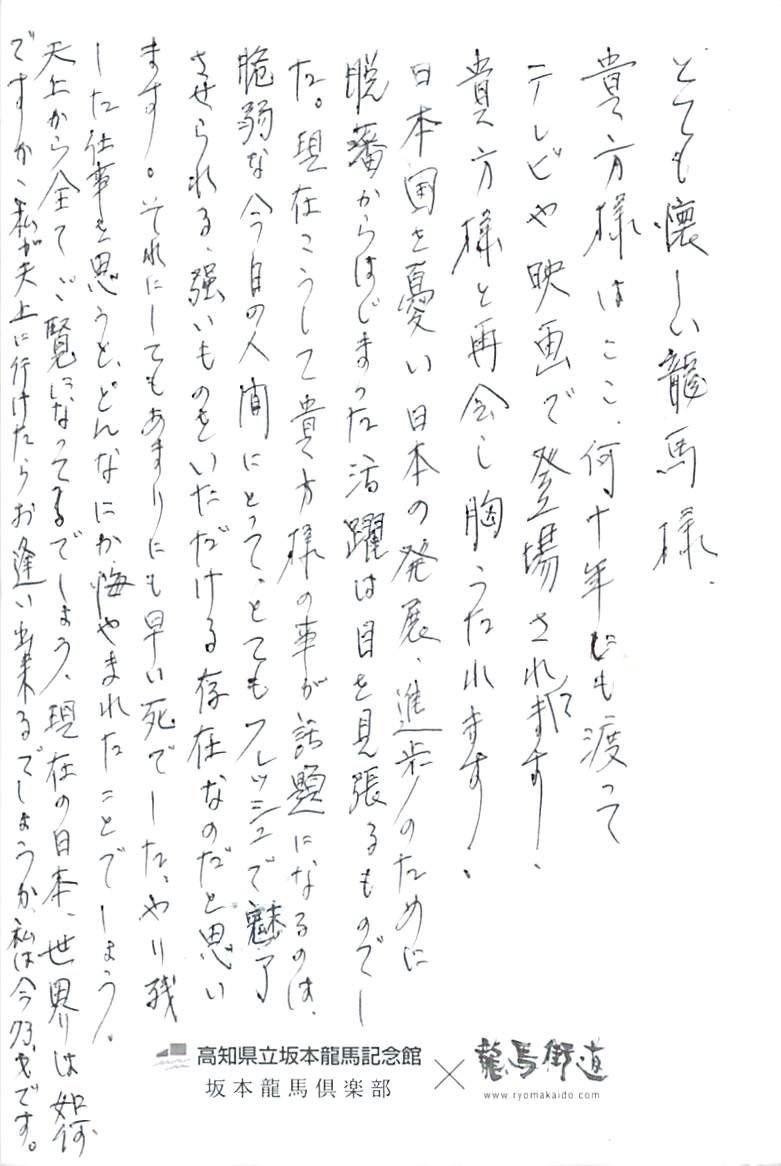 とても懐しい龍馬様.
貴方様はここ、何十年にも渡って
テレビや映画で登場されてます、
貴方様と再会し胸うたれます、
日本国を憂い日本の発展、進歩のために
脱藩からはじまった活躍は目を見張るものでし
た。現在こうして貴方様の事が話題になるのは、
脆弱な今日の人間にとって、とてもフレッシュで魅了
させられる、強いものをいただける存在なのだと思い
ます。それにしてもあまりにも早い死でした、やり残
した仕事を思うと、どんなにか悔やまれたことでしょう。
天上から全てご覧になってるでしょう、現在の日本、世界は如何
ですか、私が天上に行けたらお逢い出来るでしょうか、私は今73才です。
高知県立坂本龍馬記念館
坂本龍馬倶楽部
×
龍馬街道
www.ryomakaido.com